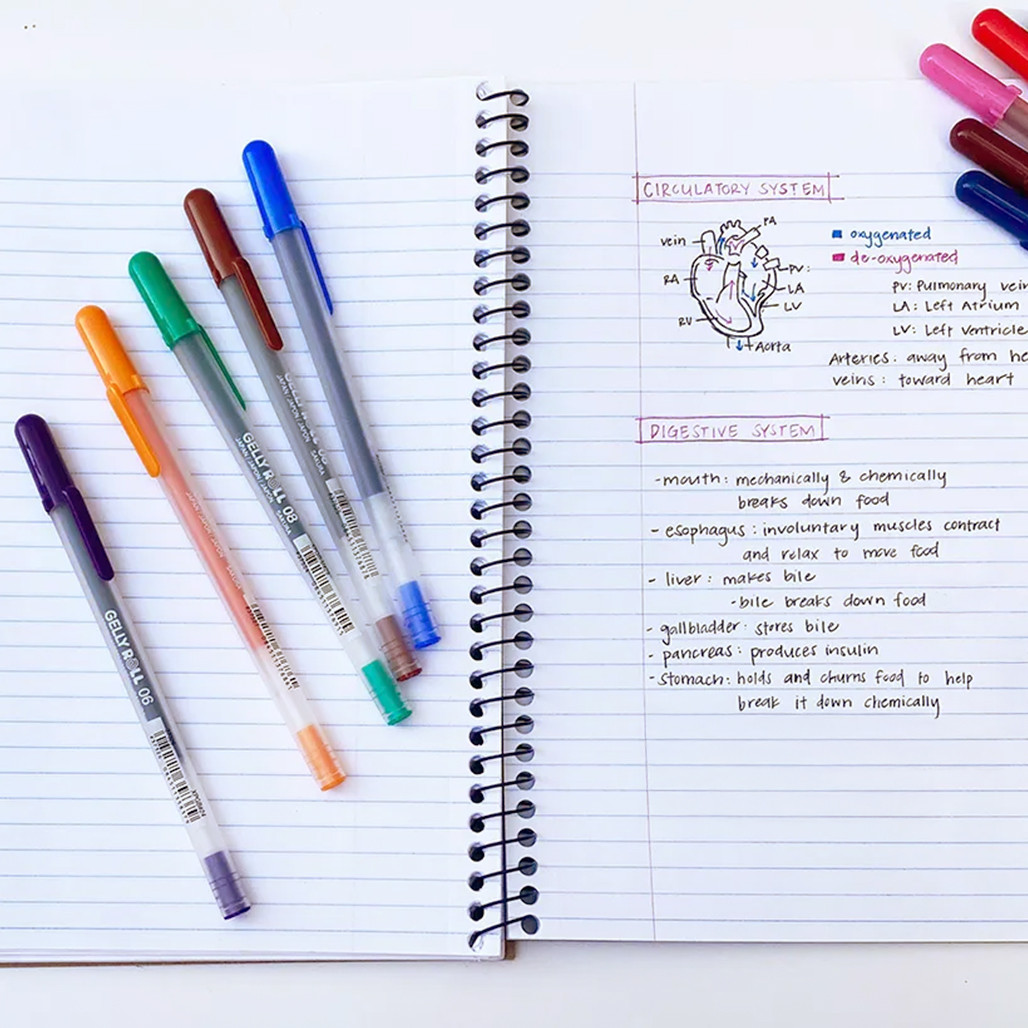 GELLY ROLL 06
GELLY ROLL 08
JAPAN / JAPON / JAPÃO
SAKURA
CIRCULATORY SYSTEM
vein
PA
RA
PV:
LA
LV
RV
Aorta
oxygenated
de-oxygenated
PV: Pulmonary vein
LA: Left Atrium
LV: Left Ventricle
Arteries: away from he
veins: toward heart
DIGESTIVE SYSTEM
-mouth: mechanically & chemically
breaks down food
- esophagus: involuntary muscles contract
and relax to move food
- liver: makes bile
-bile breaks down food
- gallbladder: stores bile
- pancreas: produces insulin
-stomach: holds and churns food to help
break it down chemically